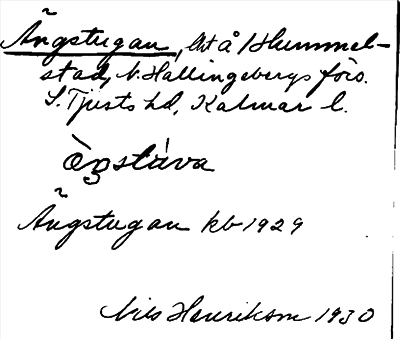 Ängstugan, lht å Hummel-
stad, N. Hallingebergs förs.
S. Tjusts hd, Kalmar l.
Ängstugan kb 1929
Nils Henrikson 1930